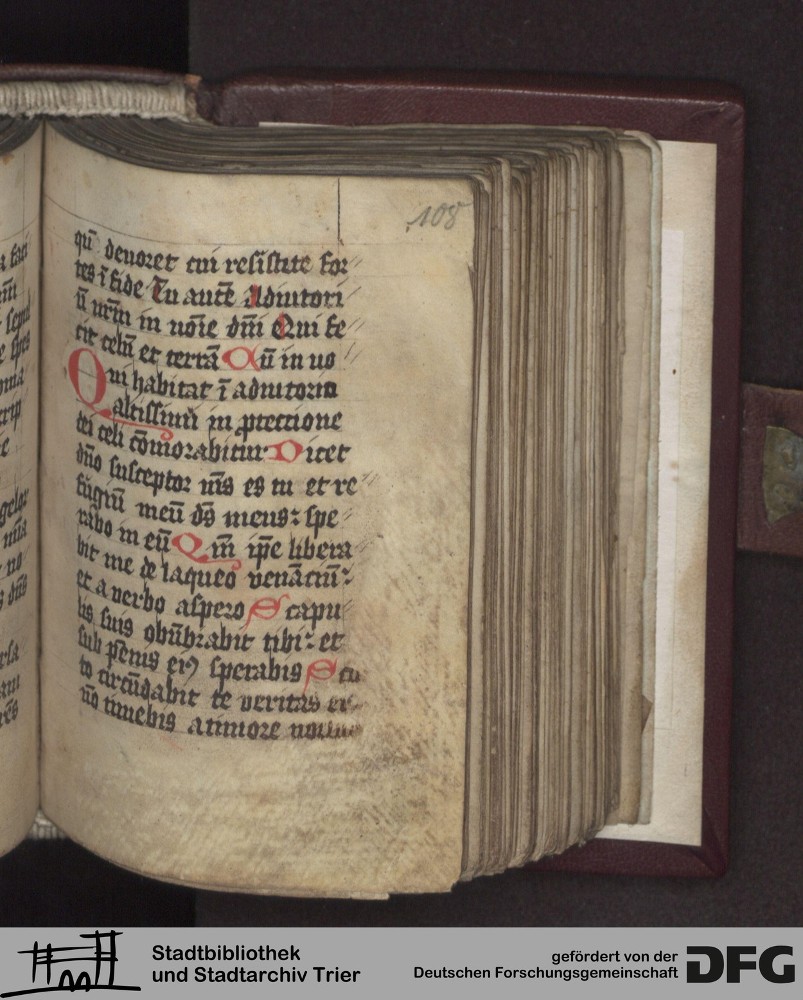 108
qū deuoret cui resistite for
tes ī fide Tu autē Adiutori
ū nr̄m in noīe dn̄i Qui fe
cit celū et terrā Cū in uo
Qui habitat ī adiutorio
altissimi in ꝓtectione
dei celi cōmorabitur Dicet
dn̄o susceptor m̄s es tu et re
fugiū meū ds̄ meus: spe
rabo in eū Qm̄ ip̄e libera
bit me de laqueo venāciū:
et a verbo aspero Scapu
lis suis obūbrabit tibi: et
sub pēnis eiꝰ sperabis Scu
to circūdabit te veritas ei
nō timebis a timore
Stadtbibliothek
und Stadtarchiv Trier
gefördert von der
Deutschen Forschungsgemeinschaft
DFG